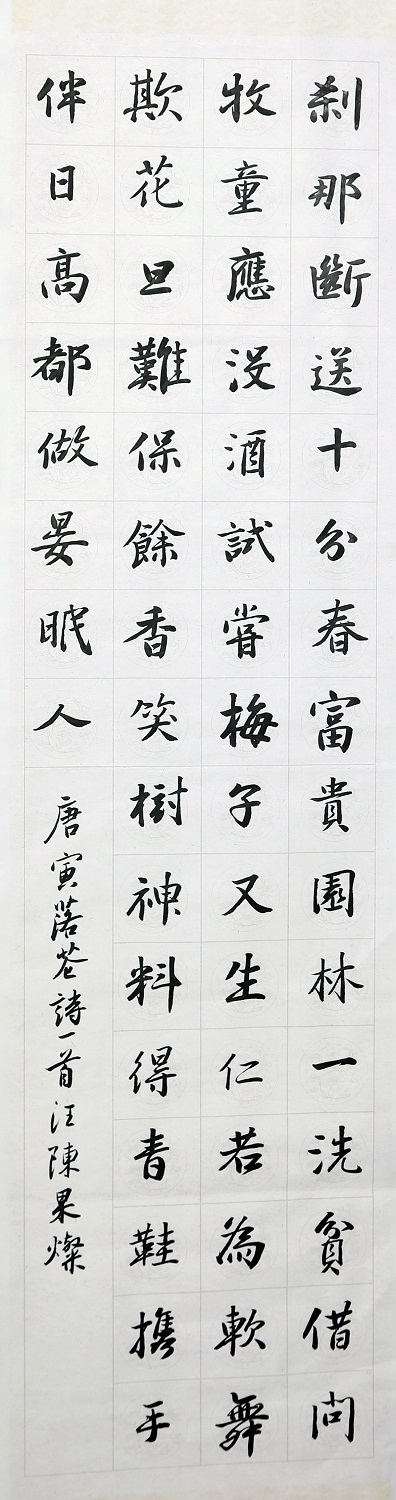 刹那斷送十分春富貴園林一洗貧借問
牧童應没酒試嘗梅子又生仁若為軟舞
欺花旦難保餘香笑樹神料得青鞋携手
伴日高都做晏眠人
唐寅落花詩一首汪陳果燦